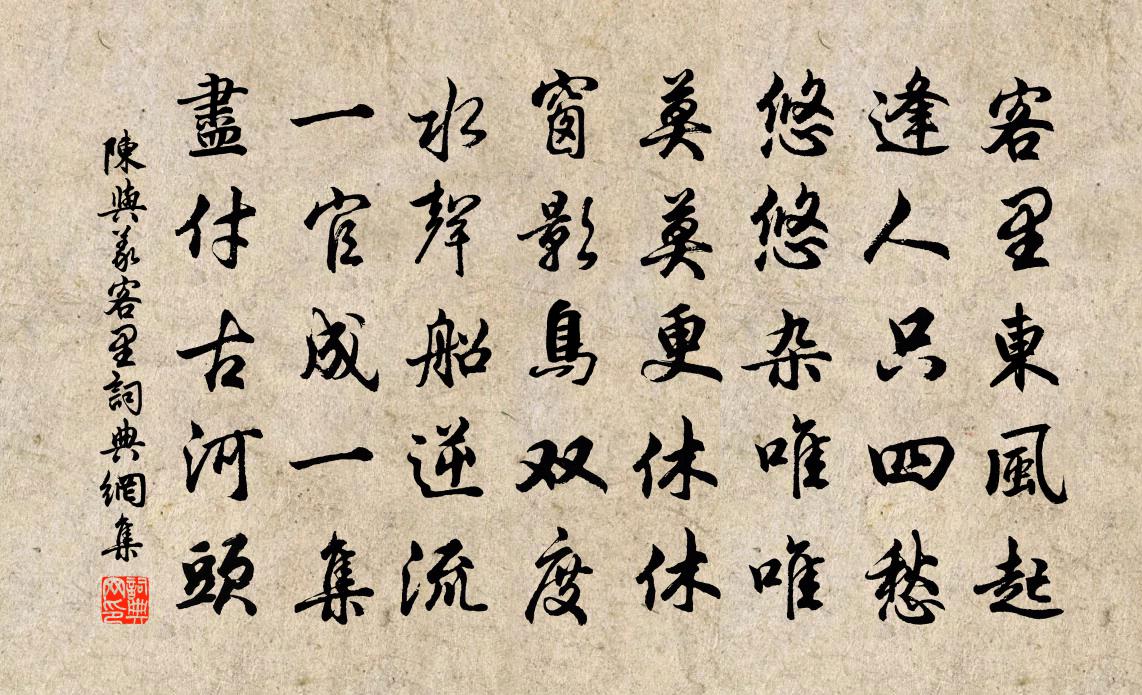 客里東風起
逢人只四愁
悠悠杂唯唯
莫莫更休休
窗影鳥双度
水聲船逆流
一官成一集
盡付古河頭
陳與義客里詞典網集
詞典
网印